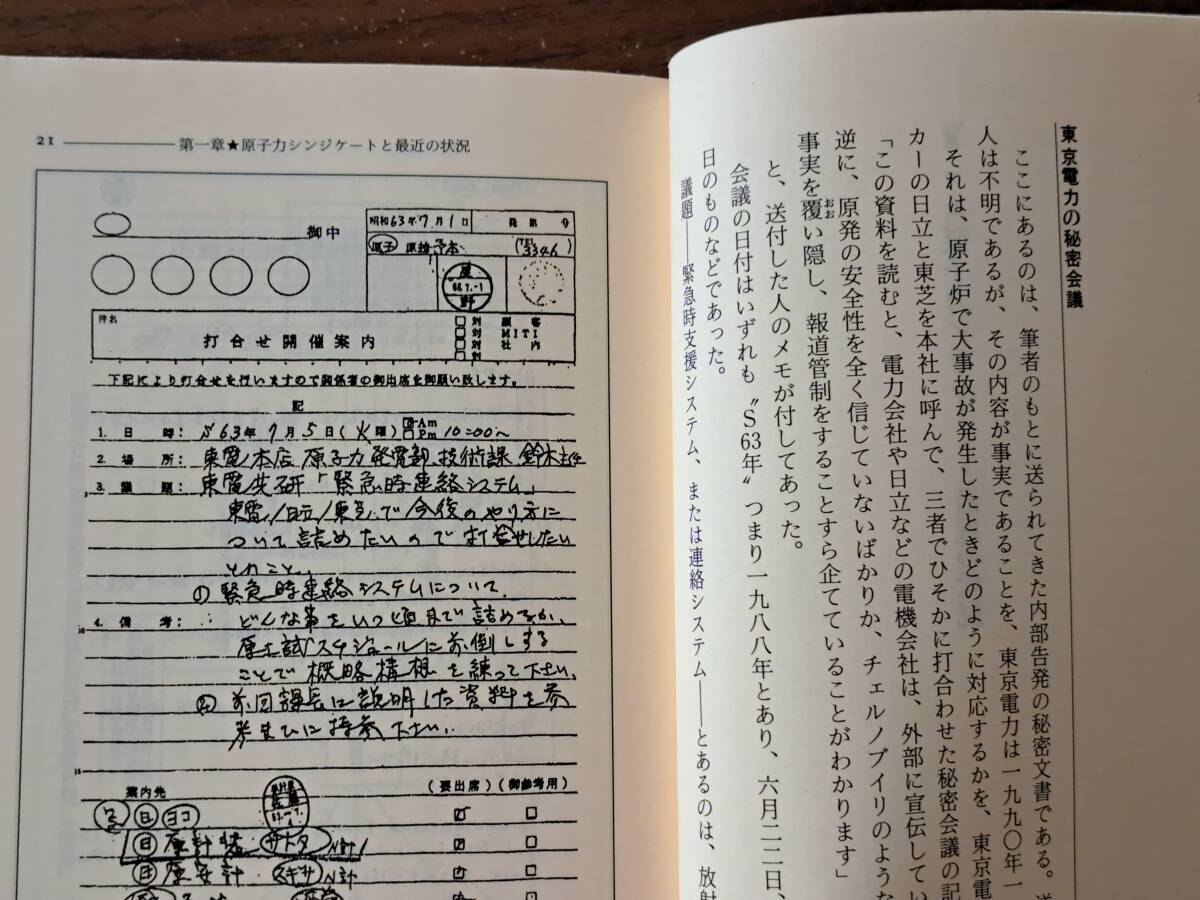 21
第一章★原子力シンジケートと最近の状況
御中
昭和63年7月1日
発第 号
原子
3346
件名
打合せ開催案内
□対 顧客
□対 MITI
□対 社内
□対
下記により打合せを行いますので関係者の御出席を御願い致します。
記
1. 日時: S63年7月5日(火曜) Am Pm 10:00〜
2. 場所: 東電本店 原子力発電部 技術課 鈴木主任
3. 議題: 東電共研「緊急時連絡システム」
東電/日立/東芝で今後のやり方に
ついて詰めたいので打合せしたい
とのこと。
① 緊急時連絡システムについて、
4. 備考: どんな事をいつ頃まで詰めるか、
スケジュールに前倒しする
ことで概略構想を練って下さい。
② 前回課長に説明した資料を参
考までに持参下さい。
10
15
案内先
(要出席)
(御参考用)
日 ヨコ
日 原計
原安計 スギサ N計
東京電力の秘密会議
ここにあるのは、筆者のもとに送られてきた内部告発の秘密文書である。送
人は不明であるが、その内容が事実であることを、東京電力は一九九〇年一
それは、原子炉で大事故が発生したときどのように対応するかを、東京電
カーの日立と東芝を本社に呼んで、三者でひそかに打合わせた秘密会議の記
「この資料を読むと、電力会社や日立などの電機会社は、外部に宣伝してい
逆に、原発の安全性を全く信じていないばかりか、チェルノブイリのような
事実を覆い隠し、報道管制をすることすら企てていることがわかります」
おお
と、送付した人のメモが付してあった。
会議の日付はいずれも〝S63年〟つまり一九八八年とあり、六月二二日、
日のものなどであった。
議題――緊急時支援システム、または連絡システム――とあるのは、放射